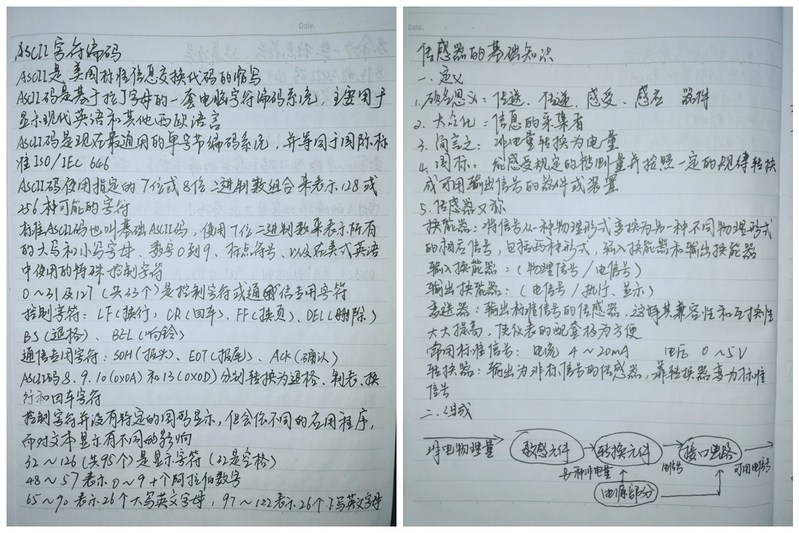 Date.
ASCII字符编码
ASCII是美国标准信息交换代码的缩写
ASCII码是基于拉丁字母的一套电脑字符编码系统，主要用于
显示现代英语和其他西欧语言
ASCII码是现今最通用的单字节编码系统，并等同于国际标
准ISO/IEC 646
ASCII码使用指定的7位或8位二进制数组合来表示128或
256种可能的字符
标准ASCII码也叫基础ASCII码，使用7位二进制数来表示所有
的大写和小写字母、数字0到9、标点符号、以及在美式英语
中使用的特殊控制字符
0～31及127（共33个）是控制字符或通信专用字符
控制字符：LF（换行）、CR（回车）、FF（换页）、DEL（删除）
BS（退格）、BEL（响铃）
通信专用字符：SOH（报头）、EOT（报尾）、ACK（确认）
ASCII码8、9、10(0x0A)和13(0x0D)分别转换为退格、制表、换
行和回车字符
控制字符并没有特定的图形显示，但会依不同的应用程序，
而对文本显示有不同的影响
32～126（共95个）是显示字符（32是空格）
48～57表示0～9十个阿拉伯数字
65～90表示26个大写英文字母，97～122表示26个小写英文字母
Date.
传感器的基础知识
一、定义
1. 顾名思义：传送、传递、感受、感应 器件
2. 大众化：信息的采集者
3. 简言之：非电量转换为电量
4. 国标：能感受规定的检测量并按照一定的规律转换
成可用输出信号的器件或装置
5. 传感器又称
换能器：将信号从一种物理形式变换为另一种不同物理形式
的相应信号，包括两种形式，输入换能器和输出换能器
输入换能器：（物理信号/电信号）
输出换能器：（电信号/执行、显示）
变送器：输出标准信号的传感器，这样其兼容性和互换性
大大提高，使仪表的配套极为方便
常用标准信号：电流 4～20mA 电压 0～5V
转换器：输出为非标信号的传感器，靠转换器变为标准
信号
二、组成
非电物理量 敏感元件 转换元件 接口电路
另一种非电量 电信号 可用电信号
电源部分